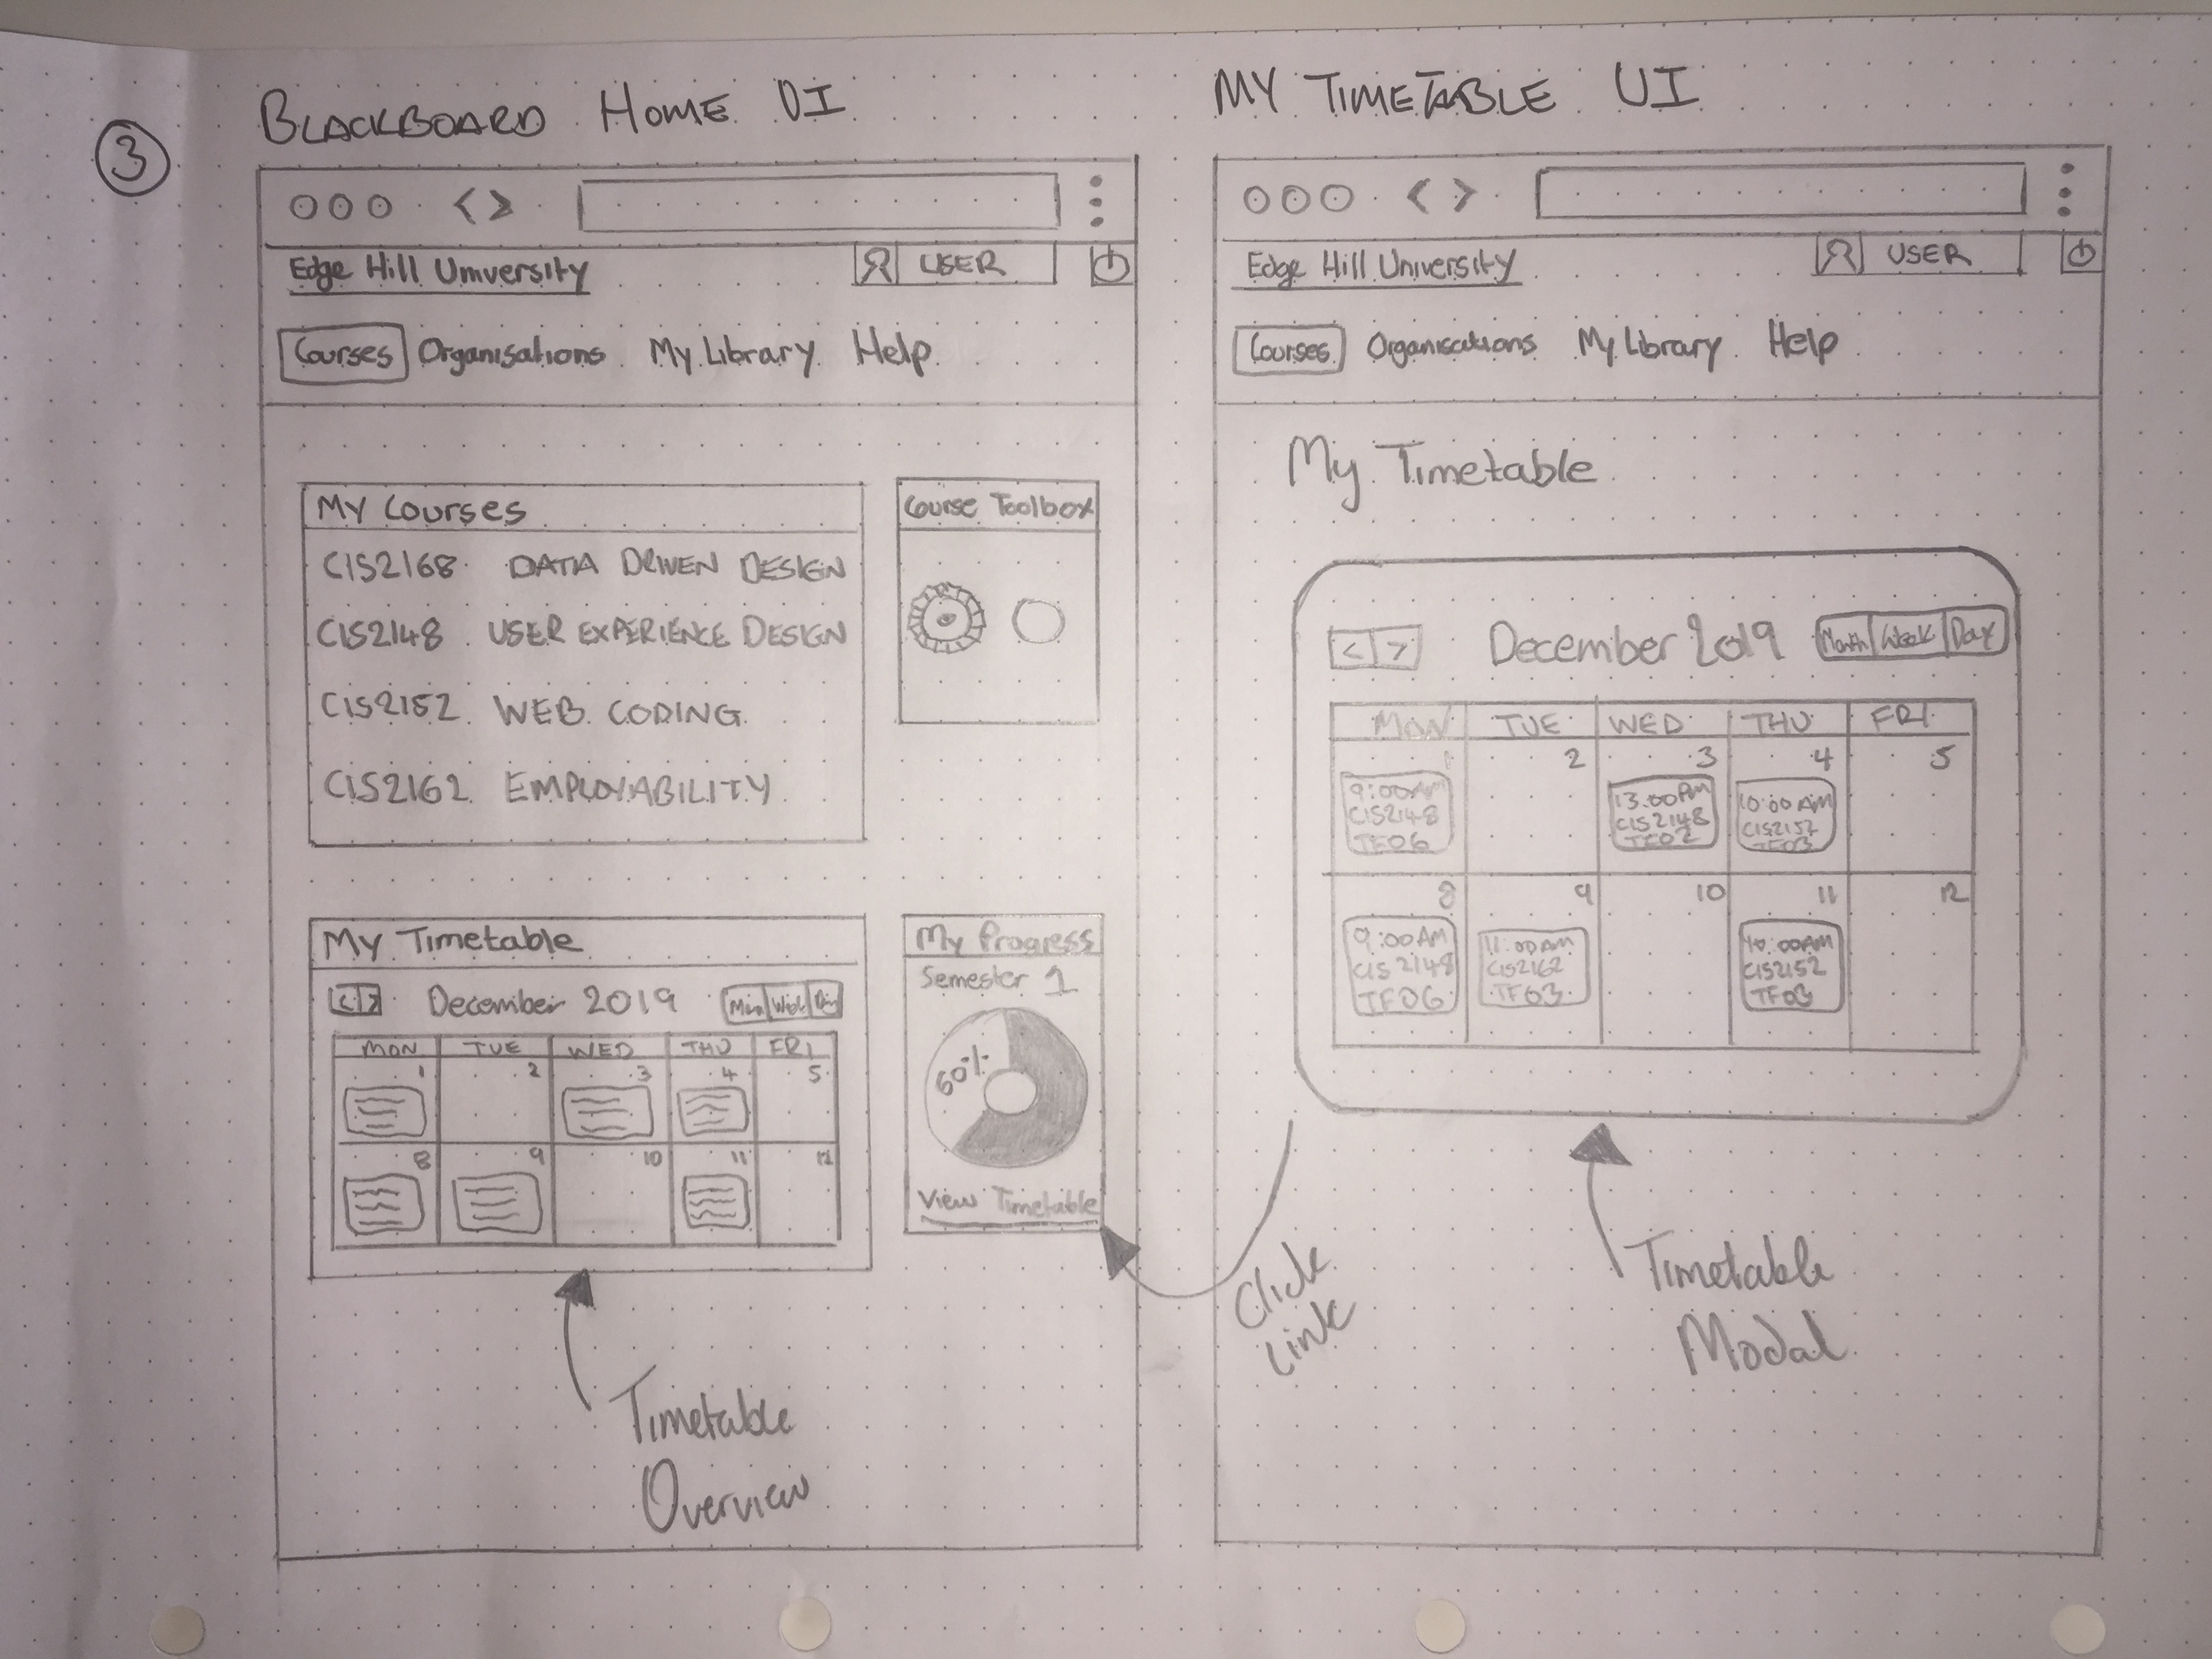 3
BLACKBOARD HOME UI
Edge Hill University
USER
Courses Organisations My Library Help
My Courses
CIS2168 DATA DRIVEN DESIGN
CIS2148 USER EXPERIENCE DESIGN
CIS2152 WEB CODING
CIS2162 EMPLOYABILITY
Course Toolbox
My Timetable
< > December 2019
MON TUE WED THU FRI
1 2 3 4 5
8 9 10 11 12
My Progress
Semester 1
60%
View Timetable
Timetable
Overview
Click
Link
MY TIMETABLE UI
Edge Hill University
USER
Courses Organisations My Library Help
My Timetable
< > December 2019 Month Week Day
MON TUE WED THU FRI
1 2 3 4 5
9:00AM
CIS2148
TF06
13:00PM
CIS2148
TF02
10:00AM
CIS2152
TF03
8 9 10 11 12
9:00AM
CIS2148
TF06
11:00AM
CIS2162
TF03
10:00AM
CIS2152
TF03
Timetable
Modal